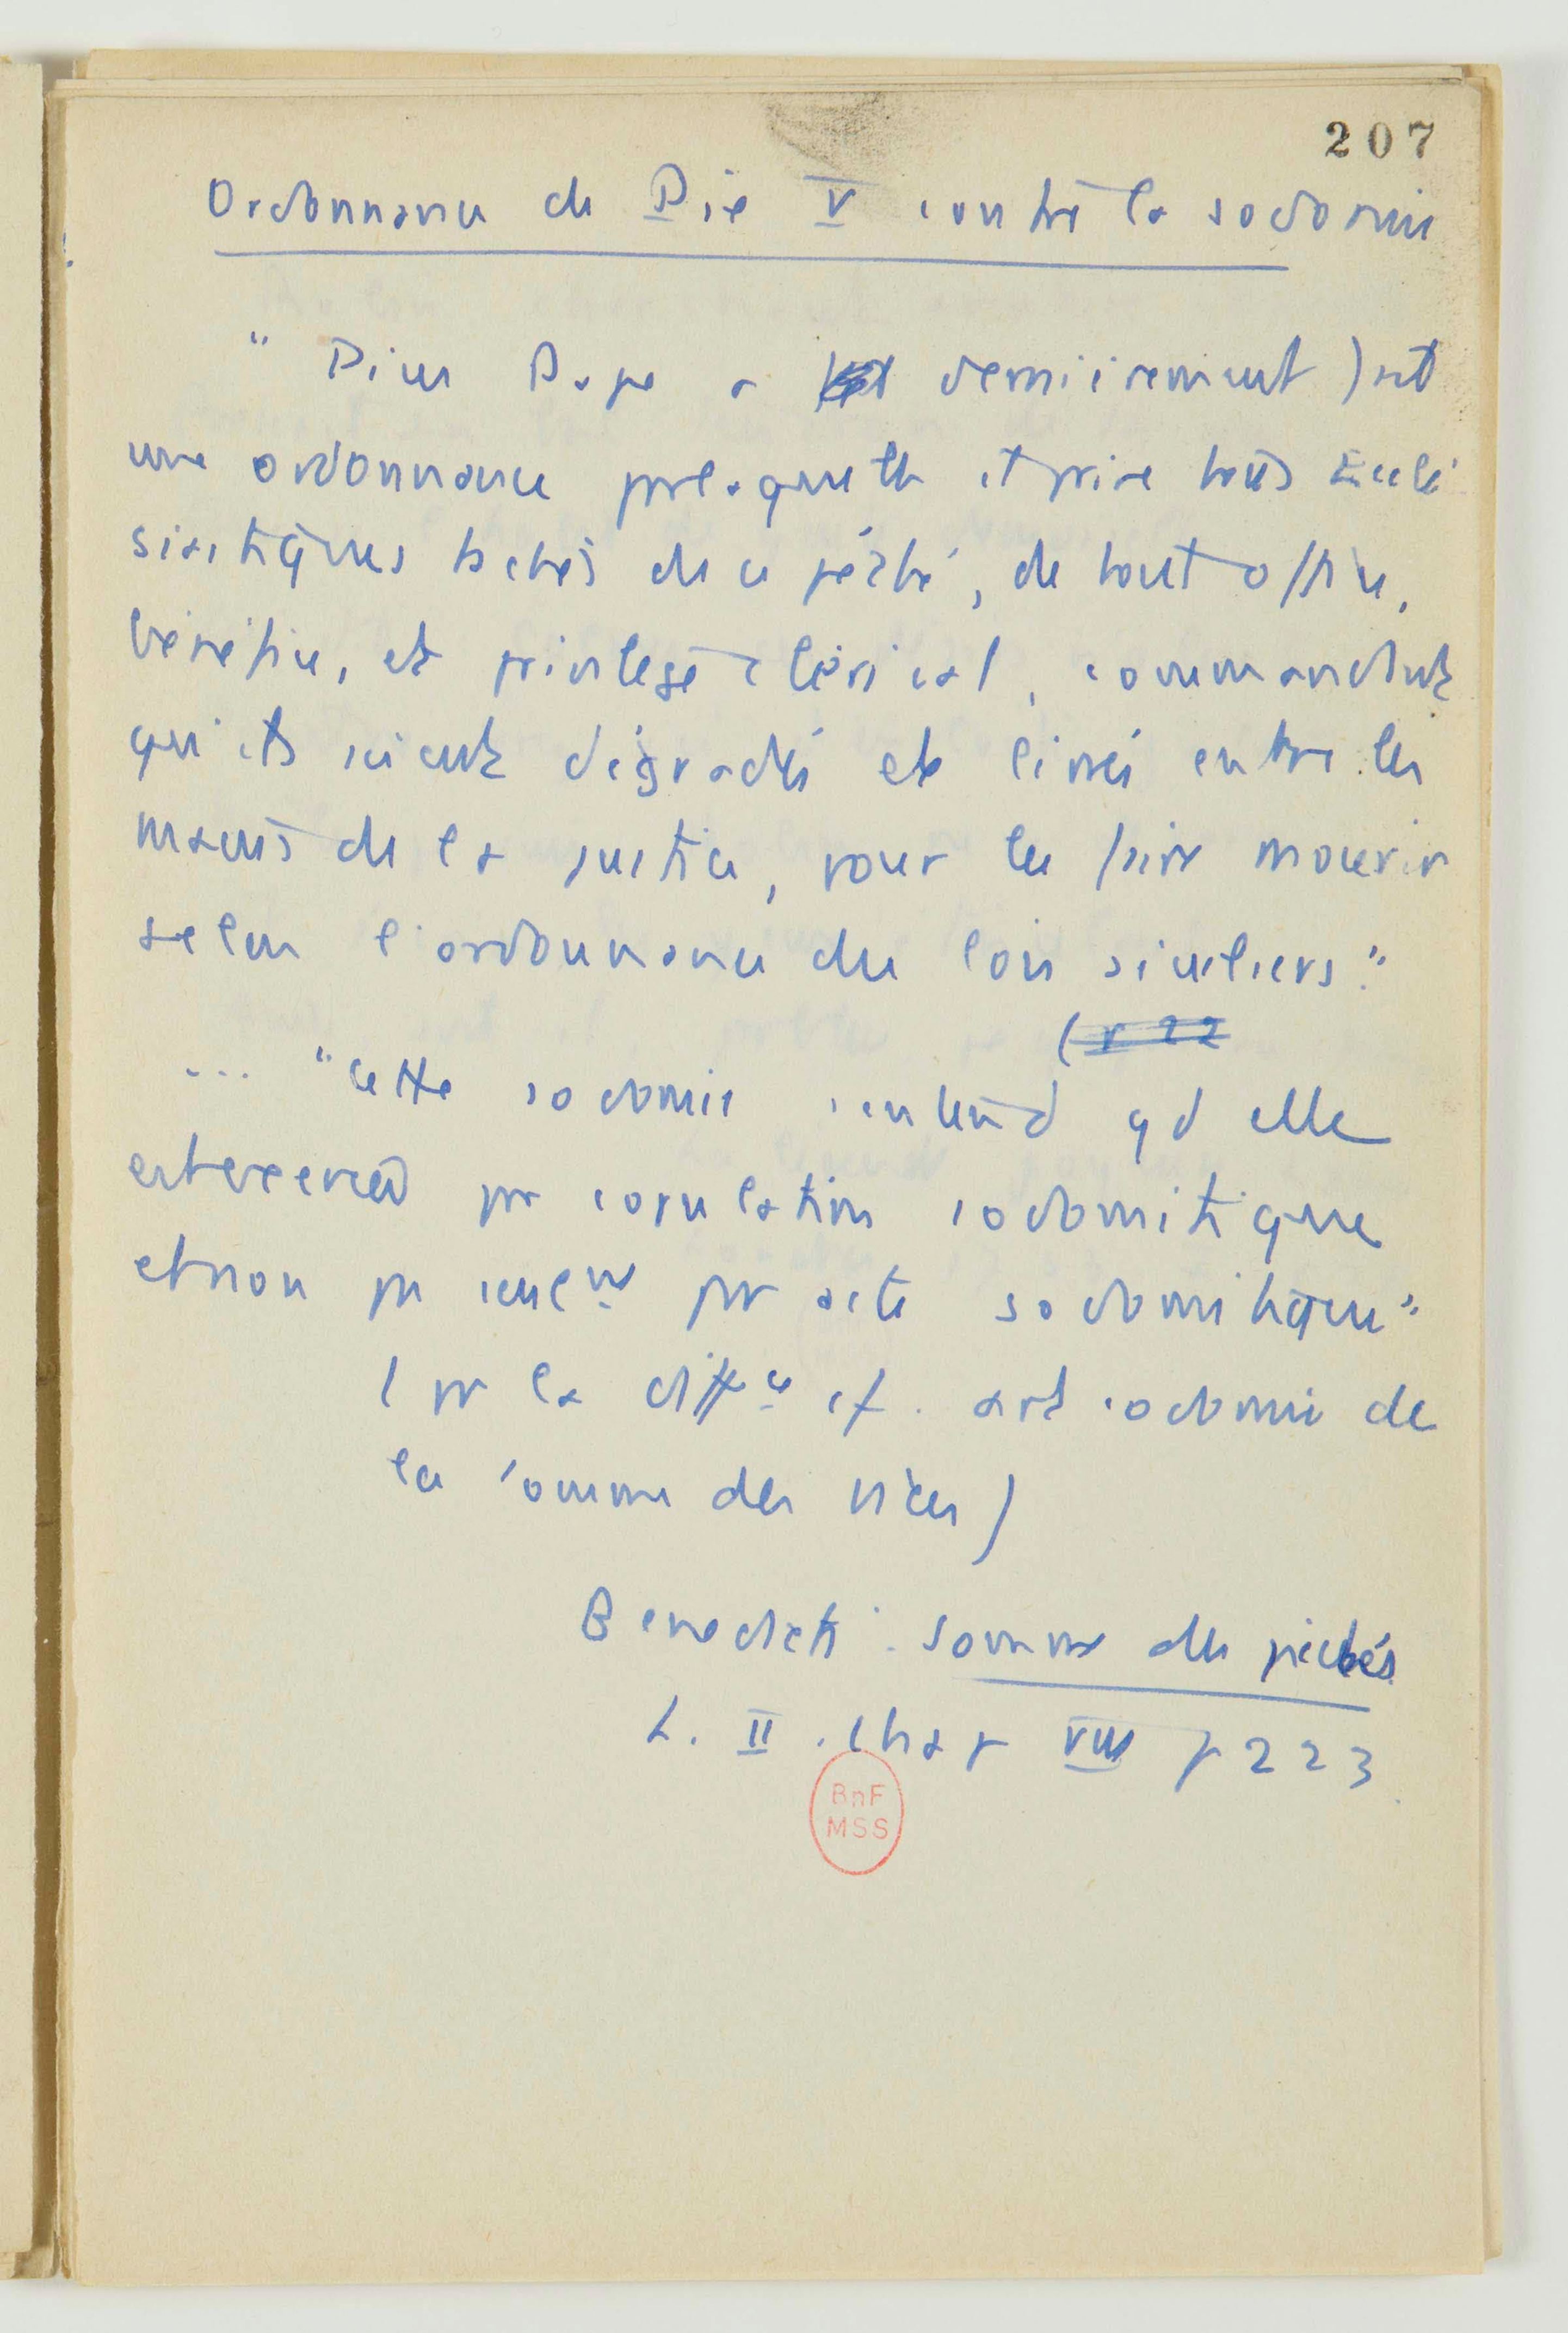 207
Ordonnance de Pie V contre la sodomie
" Pius Pape a dernièrement fait
une ordonnance par laquelle il prive tous Ecclé
siastiques tachés de ce péché, de tout office,
bénéfice, et privilège clérical, commandant
qu'ils soient dégradés et livrés entre les
mains de la justice, pour les faire mourir
selon l'ordonnance des lois séculiers."
(p 22
... "Cette sodomie s'entend qd elle
est exercée par copulation sodomitique
et non pas seulnt par acte sodomitique"
(pr la diffce cf. art sodomie de
la somme des vices)
Benedicti. Somme des péchés
L. II. Chap VIII p 223
BnF
MSS